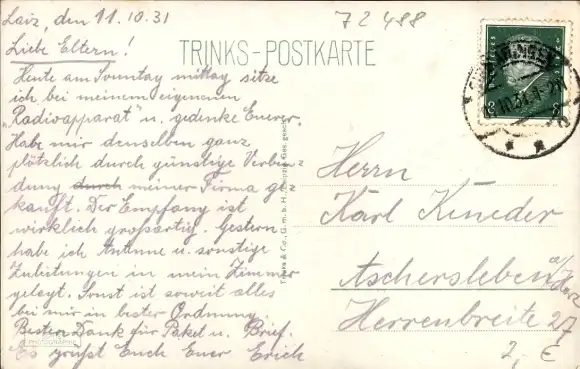 Laiz, den 11.10.31
72488
Liebe Eltern!
TRINKS-POSTKARTE
Heute am Sonntag mittag sitze
ich bei meinem eigenen
"Radioapparat" u. gedenke Euerer.
Habe mir denselben ganz
plötzlich durch günstige Verbin-
dung durch meiner Firma ge-
kauft. Der Empfang ist
wirklich großartig. Gestern
habe ich Antenne u. sonstige
Zuleitungen in mein Zimmer
gelegt. Sonst ist soweit alles
bei mir in bester Ordnung.
Besten Dank für Paket u. Brief.
Es grüßt Euch Euer Erich
PHOTOGRAPHIE
Trinks & Co., G.m.b.H., Leipzig Ges. gesch.
Herrn
Karl Kneder
Aschersleben a/Harz
Herrenbreite 27
2,€